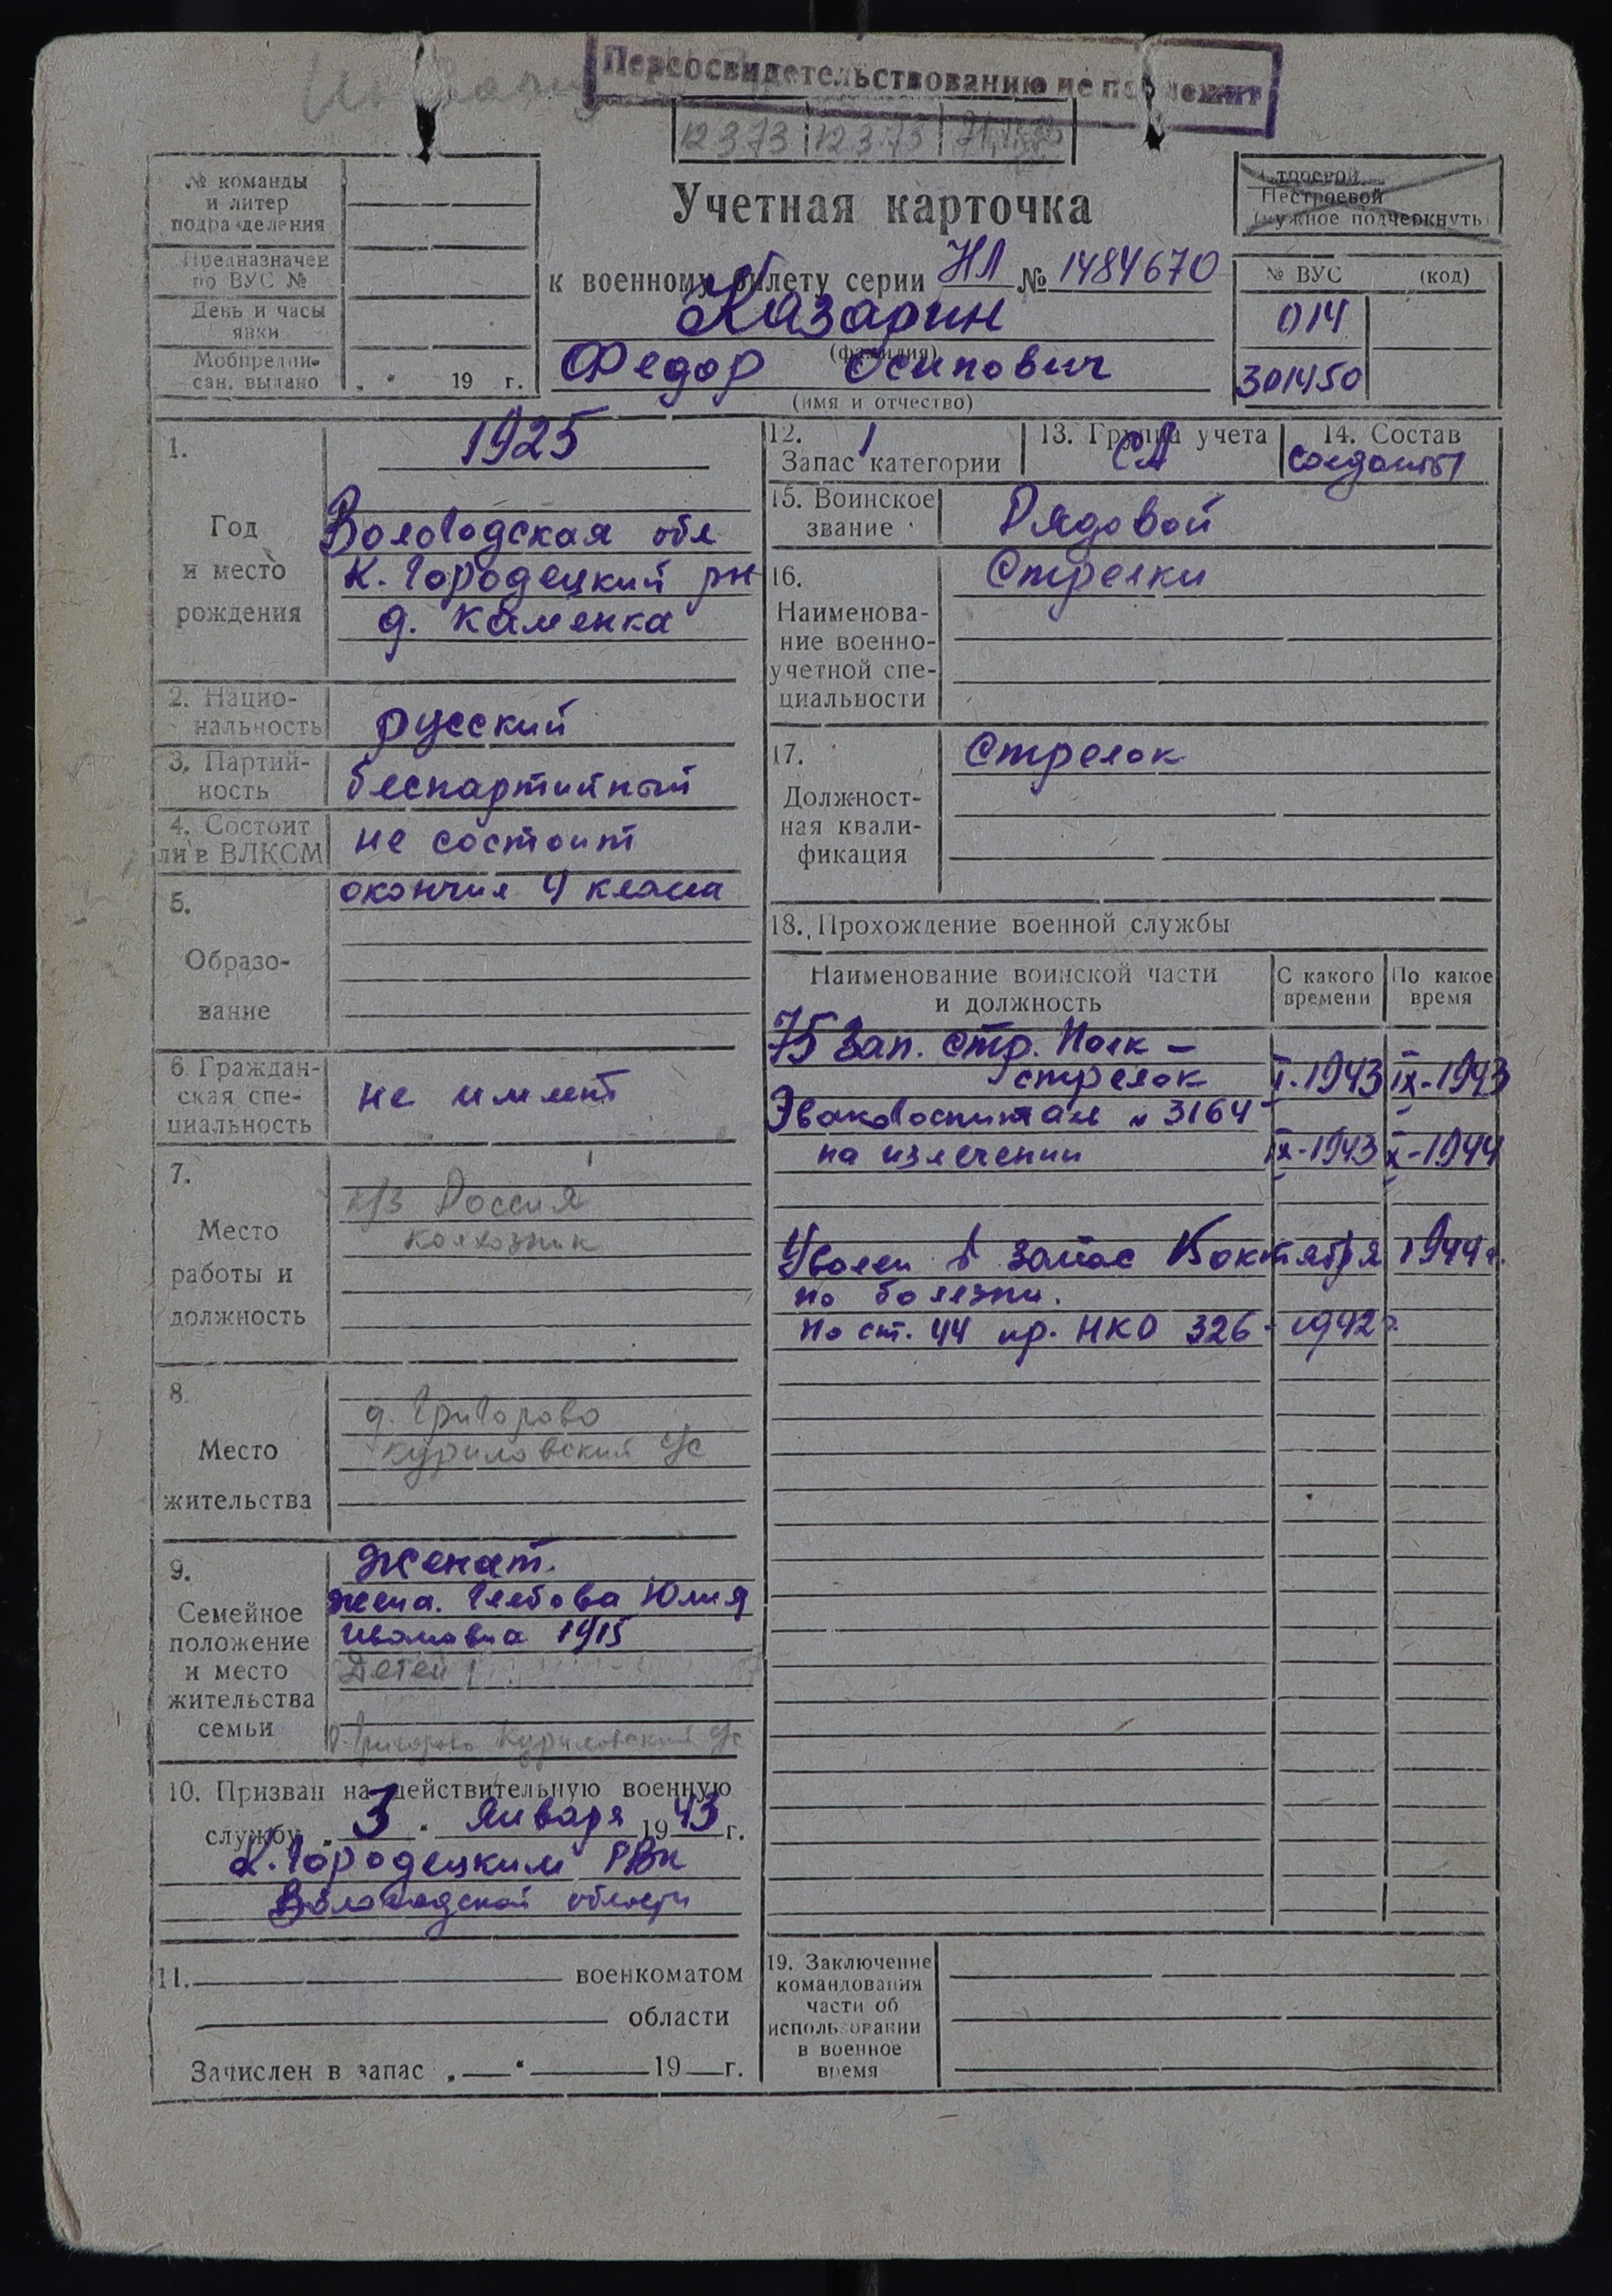 Переосвидетельствованию не подлежит
12 3 73 12 3 73
№ команды
и литер
подразделения
Предназначен
по ВУС №
День и часы
явки
Мобпредпи-
сан. выдано „ “ 19 г.
Учетная карточка
к военному билету серии НЛ № 1484670
Казарин
(фамилия)
Федор Осипович
(имя и отчество)
Строевой
Нестроевой
(нужное подчеркнуть)
№ ВУС (код)
014
301450
1.
Год
и место
рождения
1925
Вологодская обл
К. Городецкий рн
д. Каменка
2. Нацио-
нальность
русский
3. Партий-
ность
беспартийный
4. Состоит
ли в ВЛКСМ
не состоит
5.
Образо-
вание
окончил 4 класса
6 Граждан-
ская спе-
циальность
не имеет
7.
Место
работы и
должность
к/з Россия
колхозник
8.
Место
жительства
д. Григорово
Куриловский с/с
9.
Семейное
положение
и место
жительства
семьи
женат.
жена. Глебова Юлия
Ивановна 1915
Детей
д. Григорово Куриловский с/с
10. Призван на действительную военную
службу „ 3 “ января 1943 г.
К. Городецким РВК
Вологодской области
11. военкоматом
области
Зачислен в запас „ “ 19 г.
12. 1
Запас категории
13. Группа учета
СА
14. Состав
солдаты
15. Воинское
звание
Рядовой
16.
Наименова-
ние военно-
учетной спе-
циальности
Стрелки
17.
Должност-
ная квали-
фикация
Стрелок
18. Прохождение военной службы
Наименование воинской части
и должность
С какого
времени
По какое
время
75 Зап. стр. Полк –
стрелок I-1943 IX-1943
Эвакогоспиталь № 3164
на излечении IX-1943 X-1944
Уволен в запас 15 октября 1944 г.
по болезни.
по ст. 44 пр. НКО 326 - 1942 г.
19. Заключение
командования
части об
использовании
в военное
время